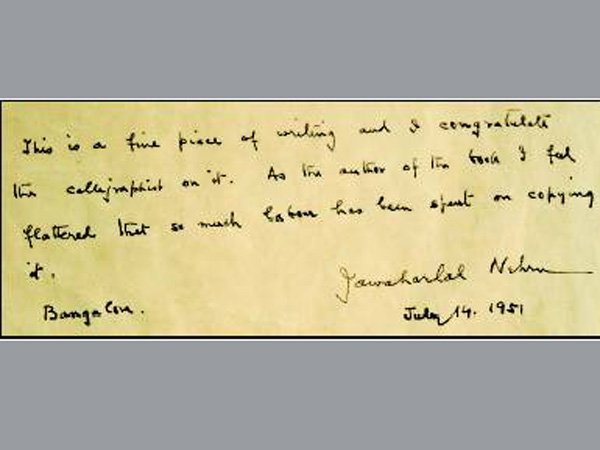 This is a fine piece of writing and I congratulate
the calligraphist on it. As the author of the book I feel
flattered that so much labour has been spent on copying
it.
Jawaharlal Nehru
Bangalore.
July 14. 1951